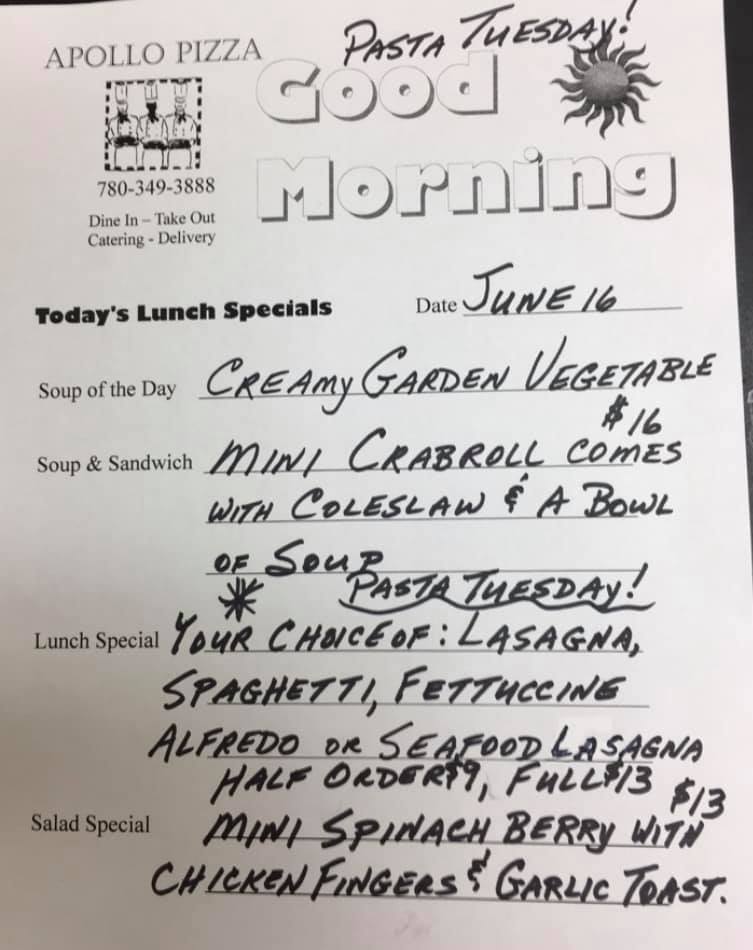 PASTA TUESDAY!
APOLLO PIZZA
Good
Morning
780-349-3888
Dine In – Take Out
Catering - Delivery
Today's Lunch Specials
Date JUNE 16
Soup of the Day CREAMY GARDEN VEGETABLE
$16
Soup & Sandwich MINI CRABROLL COMES
WITH COLESLAW & A BOWL
OF SOUP
PASTA TUESDAY!
Lunch Special YOUR CHOICE OF: LASAGNA,
SPAGHETTI, FETTUCCINE
ALFREDO OR SEAFOOD LASAGNA
HALF ORDER $9, FULL $13
$13
Salad Special MINI SPINACH BERRY WITH
CHICKEN FINGERS & GARLIC TOAST.